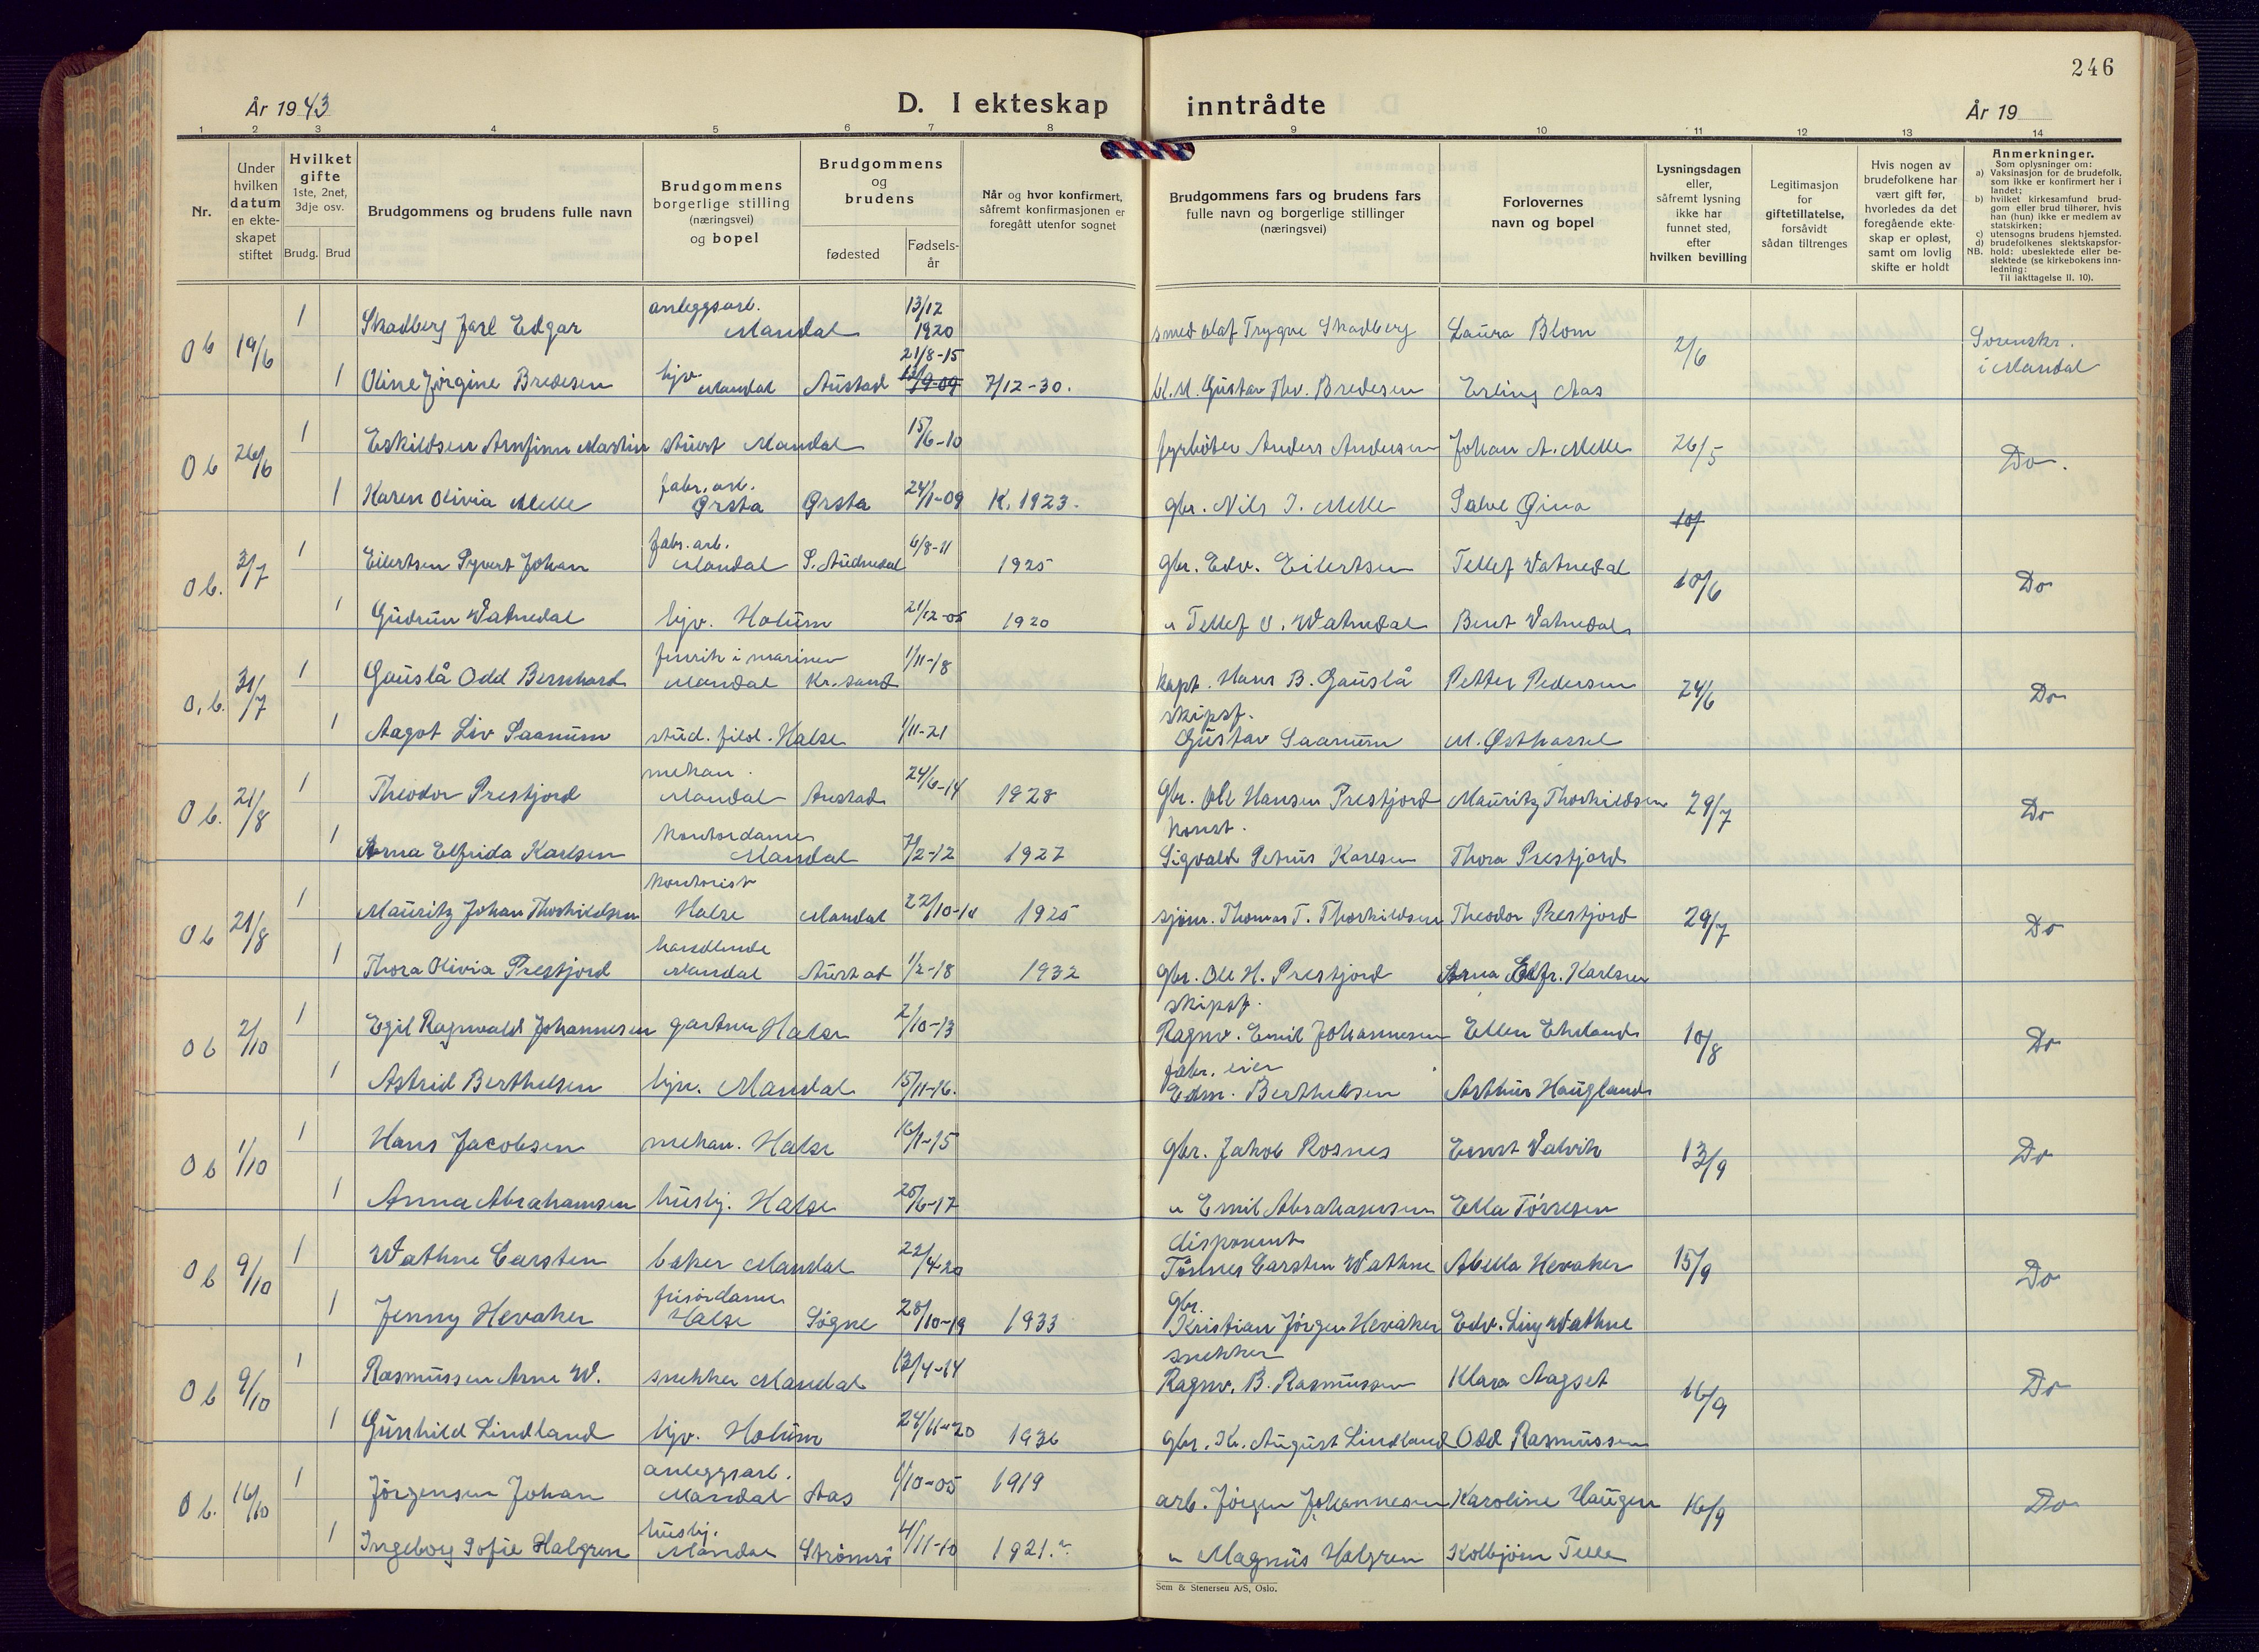 246
År 1943
D. I ekteskap inntrådte
År 19
1 2 3 4 5 6 7 8 9 10 11 12 13 14
Nr.
Under hvilken datum en ekteskapet stiftet
Hvilket gifte
1ste, 2net, 3dje osv.
Brudg. Brud
Brudgommens og brudens fulle navn
Brudgommens borgerlige stilling (næringsvei) og bopel
Brudgommens og brudens
fødested
Fødselsår
Når og hvor konfirmert, såfremt konfirmasjonen er foregått utenfor sognet
Brudgommens fars og brudens fars fulle navn og borgerlige stillinger (næringsvei)
Forlovernes navn og bopel
Lysningsdagen eller, såfremt lysning ikke har funnet sted, efter hvilken bevilling
Legitimasjon for giftetillatelse, forsåvidt sådan tiltrenges
Hvis nogen av brudefolkene har vært gift før, hvorledes da det foregående ekteskap er opløst, samt om lovlig skifte er holdt
Anmerkninger.
Som oplysninger om:
a) Vaksinasjon for de brudefolk, som ikke er konfirmert her i landet;
b) hvilket kirkesamfund brudgom eller brud tilhører, hvis han (hun) ikke er medlem av statskirken;
c) utensogns brudens hjemsted.
d) brudefolkenes slektskapsforhold: ubeslektede eller beslektede (se kirkebokens innledning:
NB. Til iakttagelse II. 10).
Ob 19/6 1 Skadberg Jarl Edgar anleggsarb. Mandal 13/12 1920 smed Olaf Trygve Skadberg Laura Blom 2/6 Sorenskr. i Mandal
1 Oline Jörgine Bredesen hjv. Mandal Austad 21/8-15 7/12-30. Gustav Thv. Bredesen Erling Aas
Ob 26/6 1 Eskildsen Arnfinn Martin stuert Mandal 15/6-10 fyrböter Anders Andersen Johan A. Melle 26/5 Do.
1 Karen Olivia Melle fabr. arb. Ørsta Ørsta 24/1-09 K. 1923. gbr. Nils J. Melle Salve Øina
Ob. 3/7 1 Eilertsen Syvert Johan fabr. arb. Mandal S. Audnedal 6/8-11 1925 gbr. Edv. Eilertsen Tellef Vatnedal 10/6 Do
1 Gudrun Vatnedal hjv. Holum 21/12-05 1920 " Tellef O. Vatnedal Bent Vatnedal
O.b. 31/7 1 Gauslå Odd Bernhard fenrik i marinen Mandal Kr.sand 1/11-18 kapt. Hans B. Gauslå Petter Pedersen 24/6 Do
1 Aagot Liv Saanum stud. filol. Halse 1/11-21 skipsf. Gustav Saanum M. Østhassel
Ob. 21/8 1 Theodor Prestjord mekan. Mandal Austad 24/6-14 1928 Gbr. Ole Hansen Prestjord Mauritz Thorkildsen 29/7 Do
1 Arna Elfrida Karlsen Kontordame Mandal 7/2-12 1927 konst. Sigvald Petrus Karlsen Thora Prestjord
Ob 21/8 1 Mauritz Johan Thorkildsen Kontorist Halse Mandal 22/10-10 1925 sjöm. Thomas T. Thorkildsen Theodor Prestjord 29/7 Do
1 Thora Olivia Prestjord handlende Mandal Austad 1/2-18 1932 gbr. Ole H. Prestjord Arna Elfr. Karlsen
Ob 2/10 1 Egil Ragnvald Johannesen gartner Halse 2/10-13 skipsf. Ragnv. Emil Johannesen Ellen Ehrland 10/8 Do
1 Astrid Berthelsen hjv. Mandal 15/11-16. fabr. eier Edm. Berthelsen Arthur Haugland
Ob 1/10 1 Hans Jacobsen mekan. Halse 16/1-15 gbr. Jakob Rosnes Ernst Valvik 13/9 Do
1 Anna Abrahamsen hushj. Halse 25/6-17 " Emil Abrahamsen Ella Törresen
Ob 9/10 1 Wathne Carsten baker Mandal 22/4-20 disponent Tönnes Carsten Wathne Abella Hevaker 15/9 Do
1 Jenny Hevaker frisördame Halse Sögne 28/10-19 1933 Gbr. Kristian Jörgen Hevaker Edv. Ling Wathne
Ob 9/10 1 Rasmussen Arne W. snekker Mandal 13/4-14 snekker Ragnv. B. Rasmussen Klara Aagset 16/9 Do
1 Gunhild Lindland hjv. Holum 24/11-20 1936 gbr. Kr. August Lindland Odd Rasmussen
Ob. 16/10 1 Jörgensen Johan anleggsarb. Mandal Aas 1/10-05 1919 arb. Jörgen Johannesen Karoline Haugen 16/9 Do
1 Ingeborg Sofie Halgren hushj. Mandal Strömsö 4/11-10 1921. " Magnus Halgren Kolbjörn Telle
Sem & Stenersen A/S, Oslo.